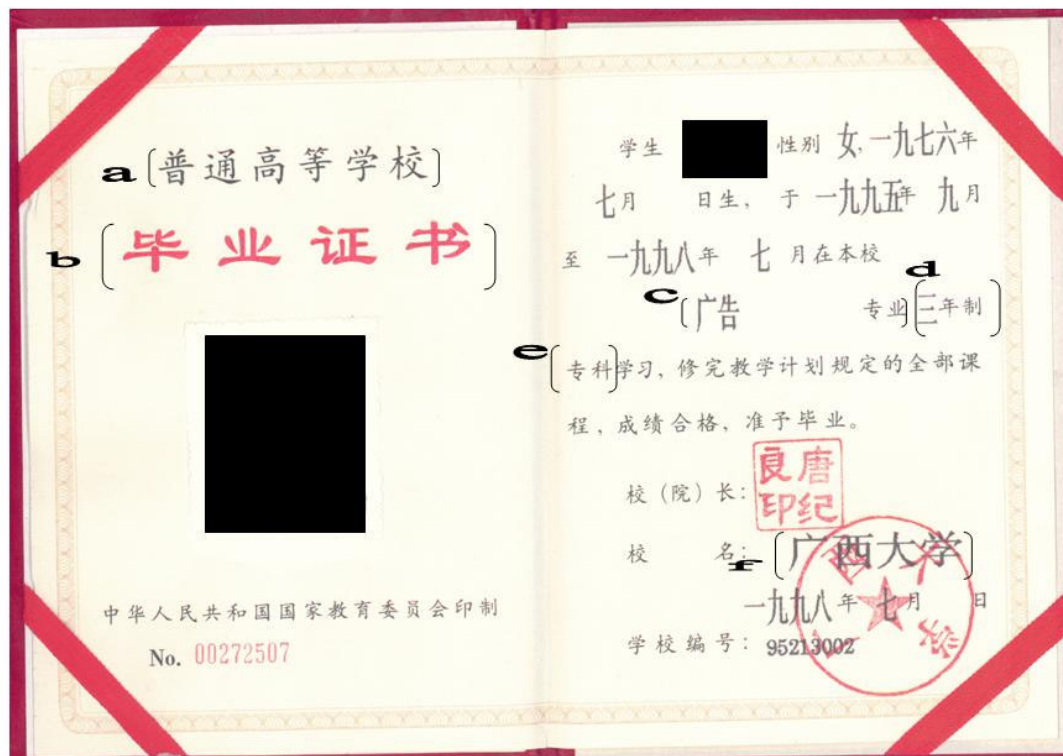 a(普通高等学校)
b(毕业证书)
中华人民共和国国家教育委员会印制
No. 00272507
学生 性别 女,一九七六年
七月 日生, 于 一九九五年 九月
至 一九九八年 七 月在本校
c d
(广告 专业)(三年制)
e(专科)学习, 修完教学计划规定的全部课
程, 成绩合格, 准予毕业。
校(院)长: 唐纪良印
校 名: f(广西大学)
一九九八年 七月 日
学校编号: 95213002
广西大学